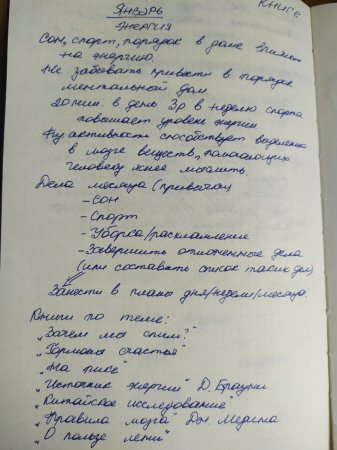 КНИГЕ
ЯНВАРЬ
ЭНЕРГИЯ
Сон, спорт, порядок в доме влияют
на энергию.
Не забывать привести в порядок
ментальной дом
20 мин. в день 3р в неделю спорта
повышает уровень энергии
Физ активность способствует выделению
в мозге веществ, помогающих
человеку яснее мыслить
Дела месяца (привычки)
- Сон
- Спорт
- Уборка/расхламление
- Завершить отложенные дела
(или составить список таких дел)
Занести в планы дня/недели/месяца.
Книги по теме:
„Зачем мы спим?"
„Гормоны счастья"
„На пике"
„Источник энергии" Д. Браунн
„Китайское исследование"
„Правила мозга" Дж. Медина
„О пользе лени"